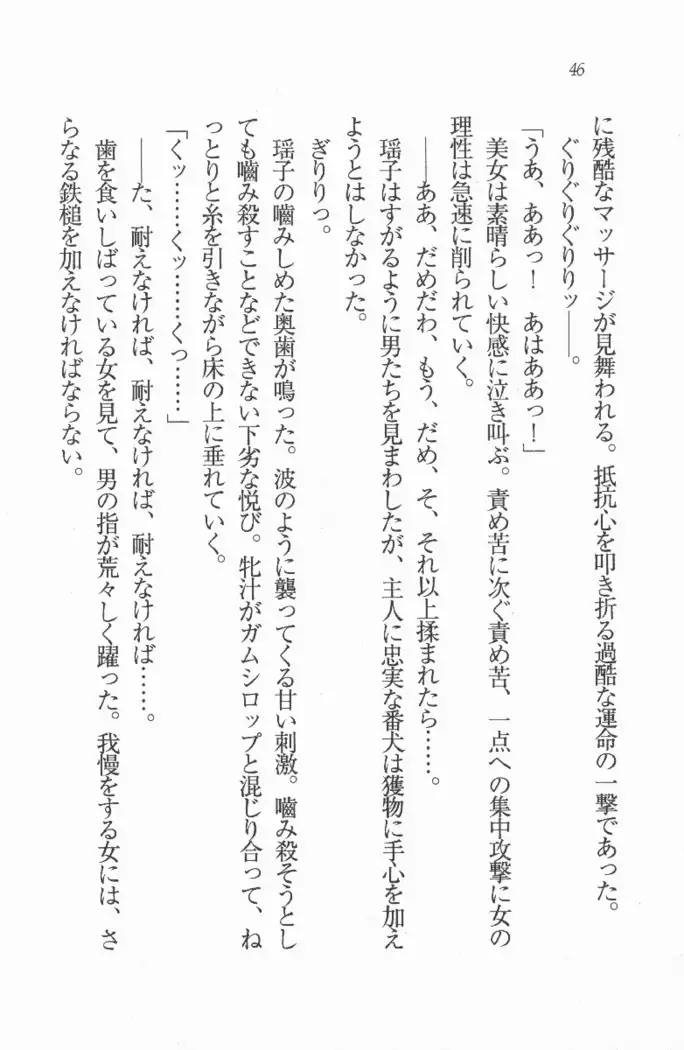 46
に残酷なマッサージが見舞われる。抵抗心を叩き折る過酷な運命の一撃であった。
ぐりぐりぐりりッ――。
「うあ、ああっ！　あはああっ！」
美女は素晴らしい快感に泣き叫ぶ。責め苦に次ぐ責め苦、一点への集中攻撃に女の
理性は急速に削られていく。
――ああ、だめだわ、もう、だめ、そ、それ以上揉まれたら……。
瑶子はすがるように男たちを見まわしたが、主人に忠実な番犬は獲物に手心を加え
ようとはしなかった。
ぎりりっ。
瑶子の嚙みしめた奥歯が鳴った。波のように襲ってくる甘い刺激。嚙み殺そうとし
ても嚙み殺すことなどできない下劣な悦び。牝汁がガムシロップと混じり合って、ね
っとりと糸を引きながら床の上に垂れていく。
「くッ……くッ……くっ……」
――た、耐えなければ、耐えなければ、耐えなければ……。
歯を食いしばっている女を見て、男の指が荒々しく躍った。我慢をする女には、さ
らなる鉄槌を加えなければならない。